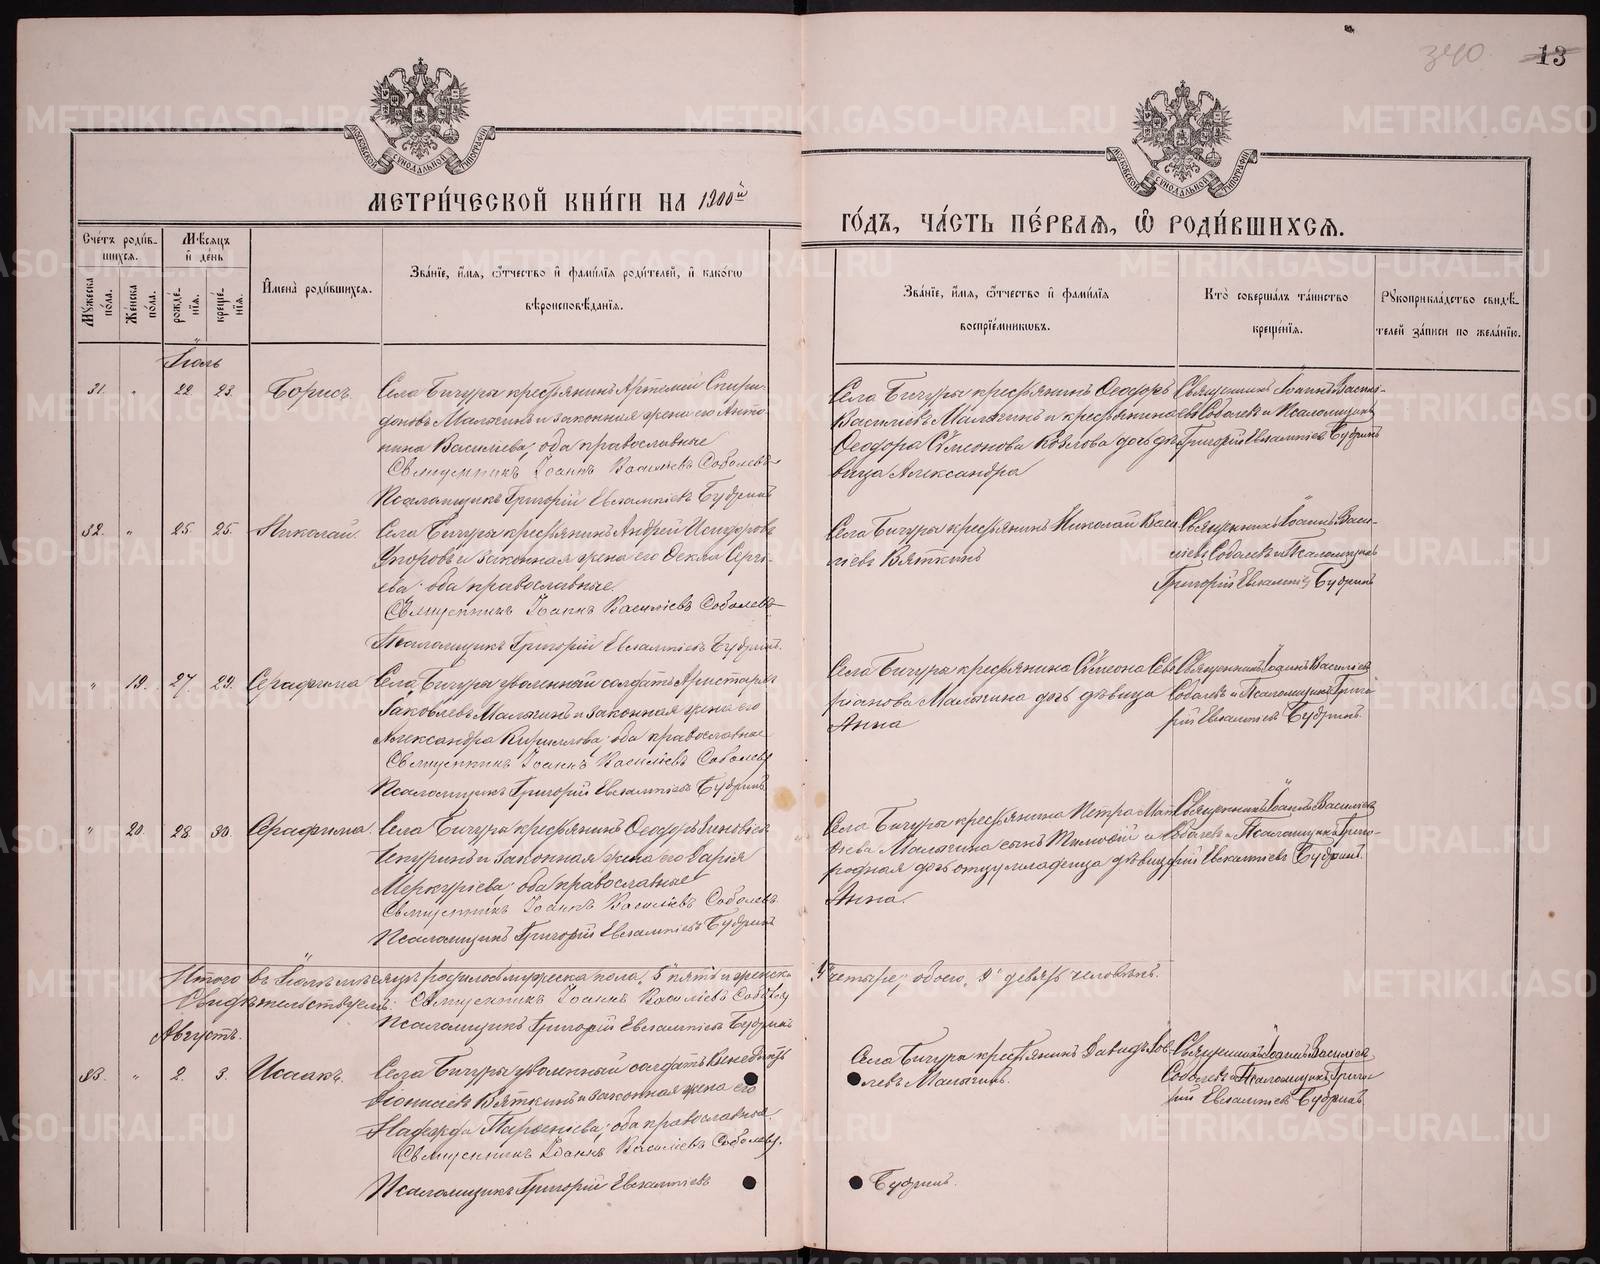 340 13
МЕТРИ́ЧЕСКОЙ КНИ́ГИ НА 1900й
ГО́ДЪ, ЧА́СТЬ ПЕ́РВАЯ, Ѽ РОДИ́ВШИХСЯ.
Сче́тъ роди́в-
шихся.
Мꙋжеска по́ла.
Же́нска по́ла.
Мѣ́сяцъ и҆ де́нь
рожде́нїя.
креще́нїя.
И҆мена̀ роди́вшихся.
Зва́нїе, и҆́мя, ѻ҆́тчество и҆ фами́лїя роди́телей, и҆ како́гѡ
вѣроисповѣ́данїя.
Зва́нїе, и҆́мя, ѻ҆́тчество и҆ фами́лїя
воспрїе́мникѡвъ.
Кто̀ соверша́лъ та́инство
креще́нїя.
Рꙋкоприкла́дство свидѣ́-
телей за́писи по жела́нїю.
Іюль
31. " 22. 23. Борисъ.
Села Бичура крестьянинъ Артемій Спири-
доновъ Малыгинъ и законная жена его Анто-
нина Васильева; оба православные
Священникъ Іоаннъ Васильевъ Соболевъ
Псаломщикъ Григорій Евлампіевъ Бубринъ
Села Бичура крестьянинъ Ѳеодоръ
Васильевъ Малыгинъ и крестьянина
Ѳеодора Сѵмеонова Козлова дочь дѣ-
вица Александра
Священникъ Іоаннъ Василь-
евъ Соболевъ и Псаломщикъ
Григорій Евлампіевъ Бубринъ
32. " 25. 25. Николай.
Села Бичура крестьянинъ Андрей Исидоровъ
и законная жена его Ѳекла Серге-
ева; оба православные.
Священникъ Іоаннъ Васильевъ Соболевъ
Псаломщикъ Григорій Евлампіевъ Бубринъ.
Села Бичура крестьянинъ Николай Васи-
льевъ Вяткинъ
Священникъ Іоаннъ Васи-
льевъ Соболевъ и Псаломщикъ
Григорій Евлампіевъ Бубринъ
" 19. 27. 29. Серафима
Села Бичура уволенный солдатъ Аристархъ
Іаковлевъ Малыгинъ и законная жена его
Александра Кириллова; оба православные
Священникъ Іоаннъ Васильевъ Соболевъ
Псаломщикъ Григорій Евлампіевъ Бубринъ
Села Бичура крестьянина Сѵмеона Севе-
ріанова Малыгина дочь дѣвица
Анна
Священникъ Іоаннъ Васильевъ
Соболевъ и Псаломщикъ Григо-
рій Евлампіевъ Бубринъ.
" 20. 28. 30. Серафима.
Села Бичура крестьянинъ Ѳеодоръ Зиновіевъ
и законная жена его Дарія
Меркуріева; оба православные
Священникъ Іоаннъ Васильевъ Соболевъ
Псаломщикъ Григорій Евлампіевъ Бубринъ
Села Бичура крестьянина Петра Мат-
ѳеева Малыгина сынъ Тимоѳей и
родная дочь отцу младенца дѣвица
Анна.
Священникъ Іоаннъ Васильевъ
Соболевъ и Псаломщикъ Григо-
рій Евлампіевъ Бубринъ.
Итого въ Іюлѣ мѣсяцѣ родилось мужеска пола "5" пять и женска "4" четыре; обоего "9" девять человѣкъ.
Свидѣтельствуемъ: Священникъ Іоаннъ Васильевъ Соболевъ
Псаломщикъ Григорій Евлампіевъ Бубринъ
Августъ.
33. " 2. 3. Исаакъ.
Села Бичура уволенный солдатъ Венедиктъ
Діонисіевъ Вяткинъ и законная жена его
Надежда Парѳеніева; оба православные.
Священникъ Іоаннъ Васильевъ Соболевъ.
Псаломщикъ Григорій Евлампіевъ Бубринъ.
Села Бичура крестьянинъ Давидъ Іов-
левъ Малыгинъ.
Священникъ Іоаннъ Васильевъ
Соболевъ и Псаломщикъ Григо-
рій Евлампіевъ Бубринъ.